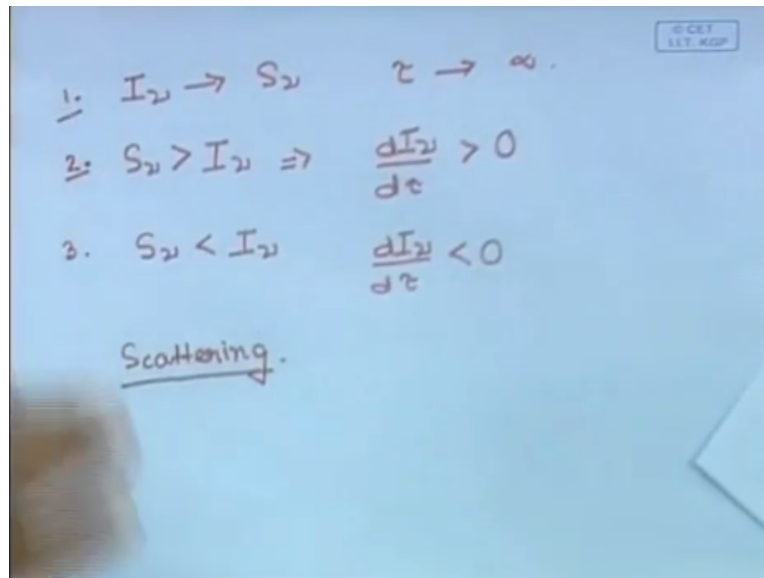 © CET
I.I.T. KGP
1. I_ν → S_ν τ → ∞.
2. S_ν > I_ν ⇒ dI_ν/dτ > 0
3. S_ν < I_ν dI_ν/dτ < 0
Scattering.